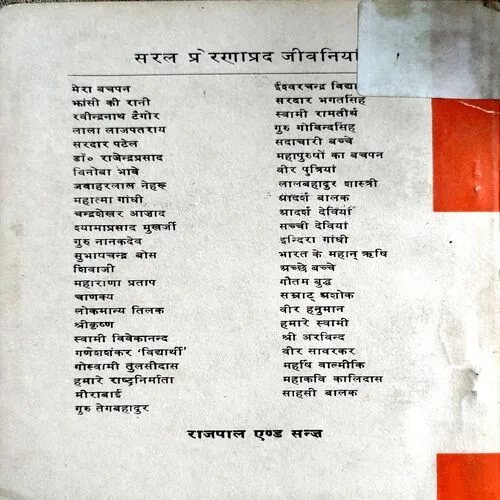 सरल प्रेरणाप्रद जीवनियां
मेरा बचपन
झांसी की रानी
रवीन्द्रनाथ टैगोर
लाला लाजपतराय
सरदार पटेल
डॉ० राजेन्द्रप्रसाद
विनोबा भावे
जवाहरलाल नेहरू
महात्मा गांधी
चन्द्रशेखर आज़ाद
श्यामाप्रसाद मुखर्जी
गुरु नानकदेव
सुभाषचन्द्र बोस
शिवाजी
महाराणा प्रताप
चाणक्य
लोकमान्य तिलक
श्रीकृष्ण
स्वामी विवेकानन्द
गणेशशंकर 'विद्यार्थी'
गोस्वामी तुलसीदास
हमारे राष्ट्रनिर्माता
मीराबाई
गुरु तेगबहादुर
ईश्वरचन्द्र विद्या
सरदार भगतसिंह
स्वामी रामतीर्थ
गुरु गोविन्दसिंह
सदाचारी बच्चे
महापुरुषों का बचपन
वीर पुत्रियां
लालबहादुर शास्त्री
आदर्श बालक
आदर्श देवियां
सच्ची देवियां
इन्दिरा गांधी
भारत के महान् ऋषि
अच्छे बच्चे
गौतम बुद्ध
सम्राट् अशोक
वीर हनुमान
हमारे स्वामी
श्री अरविन्द
वीर सावरकर
महर्षि वाल्मीकि
महाकवि कालिदास
साहसी बालक
राजपाल एण्ड सन्ज़